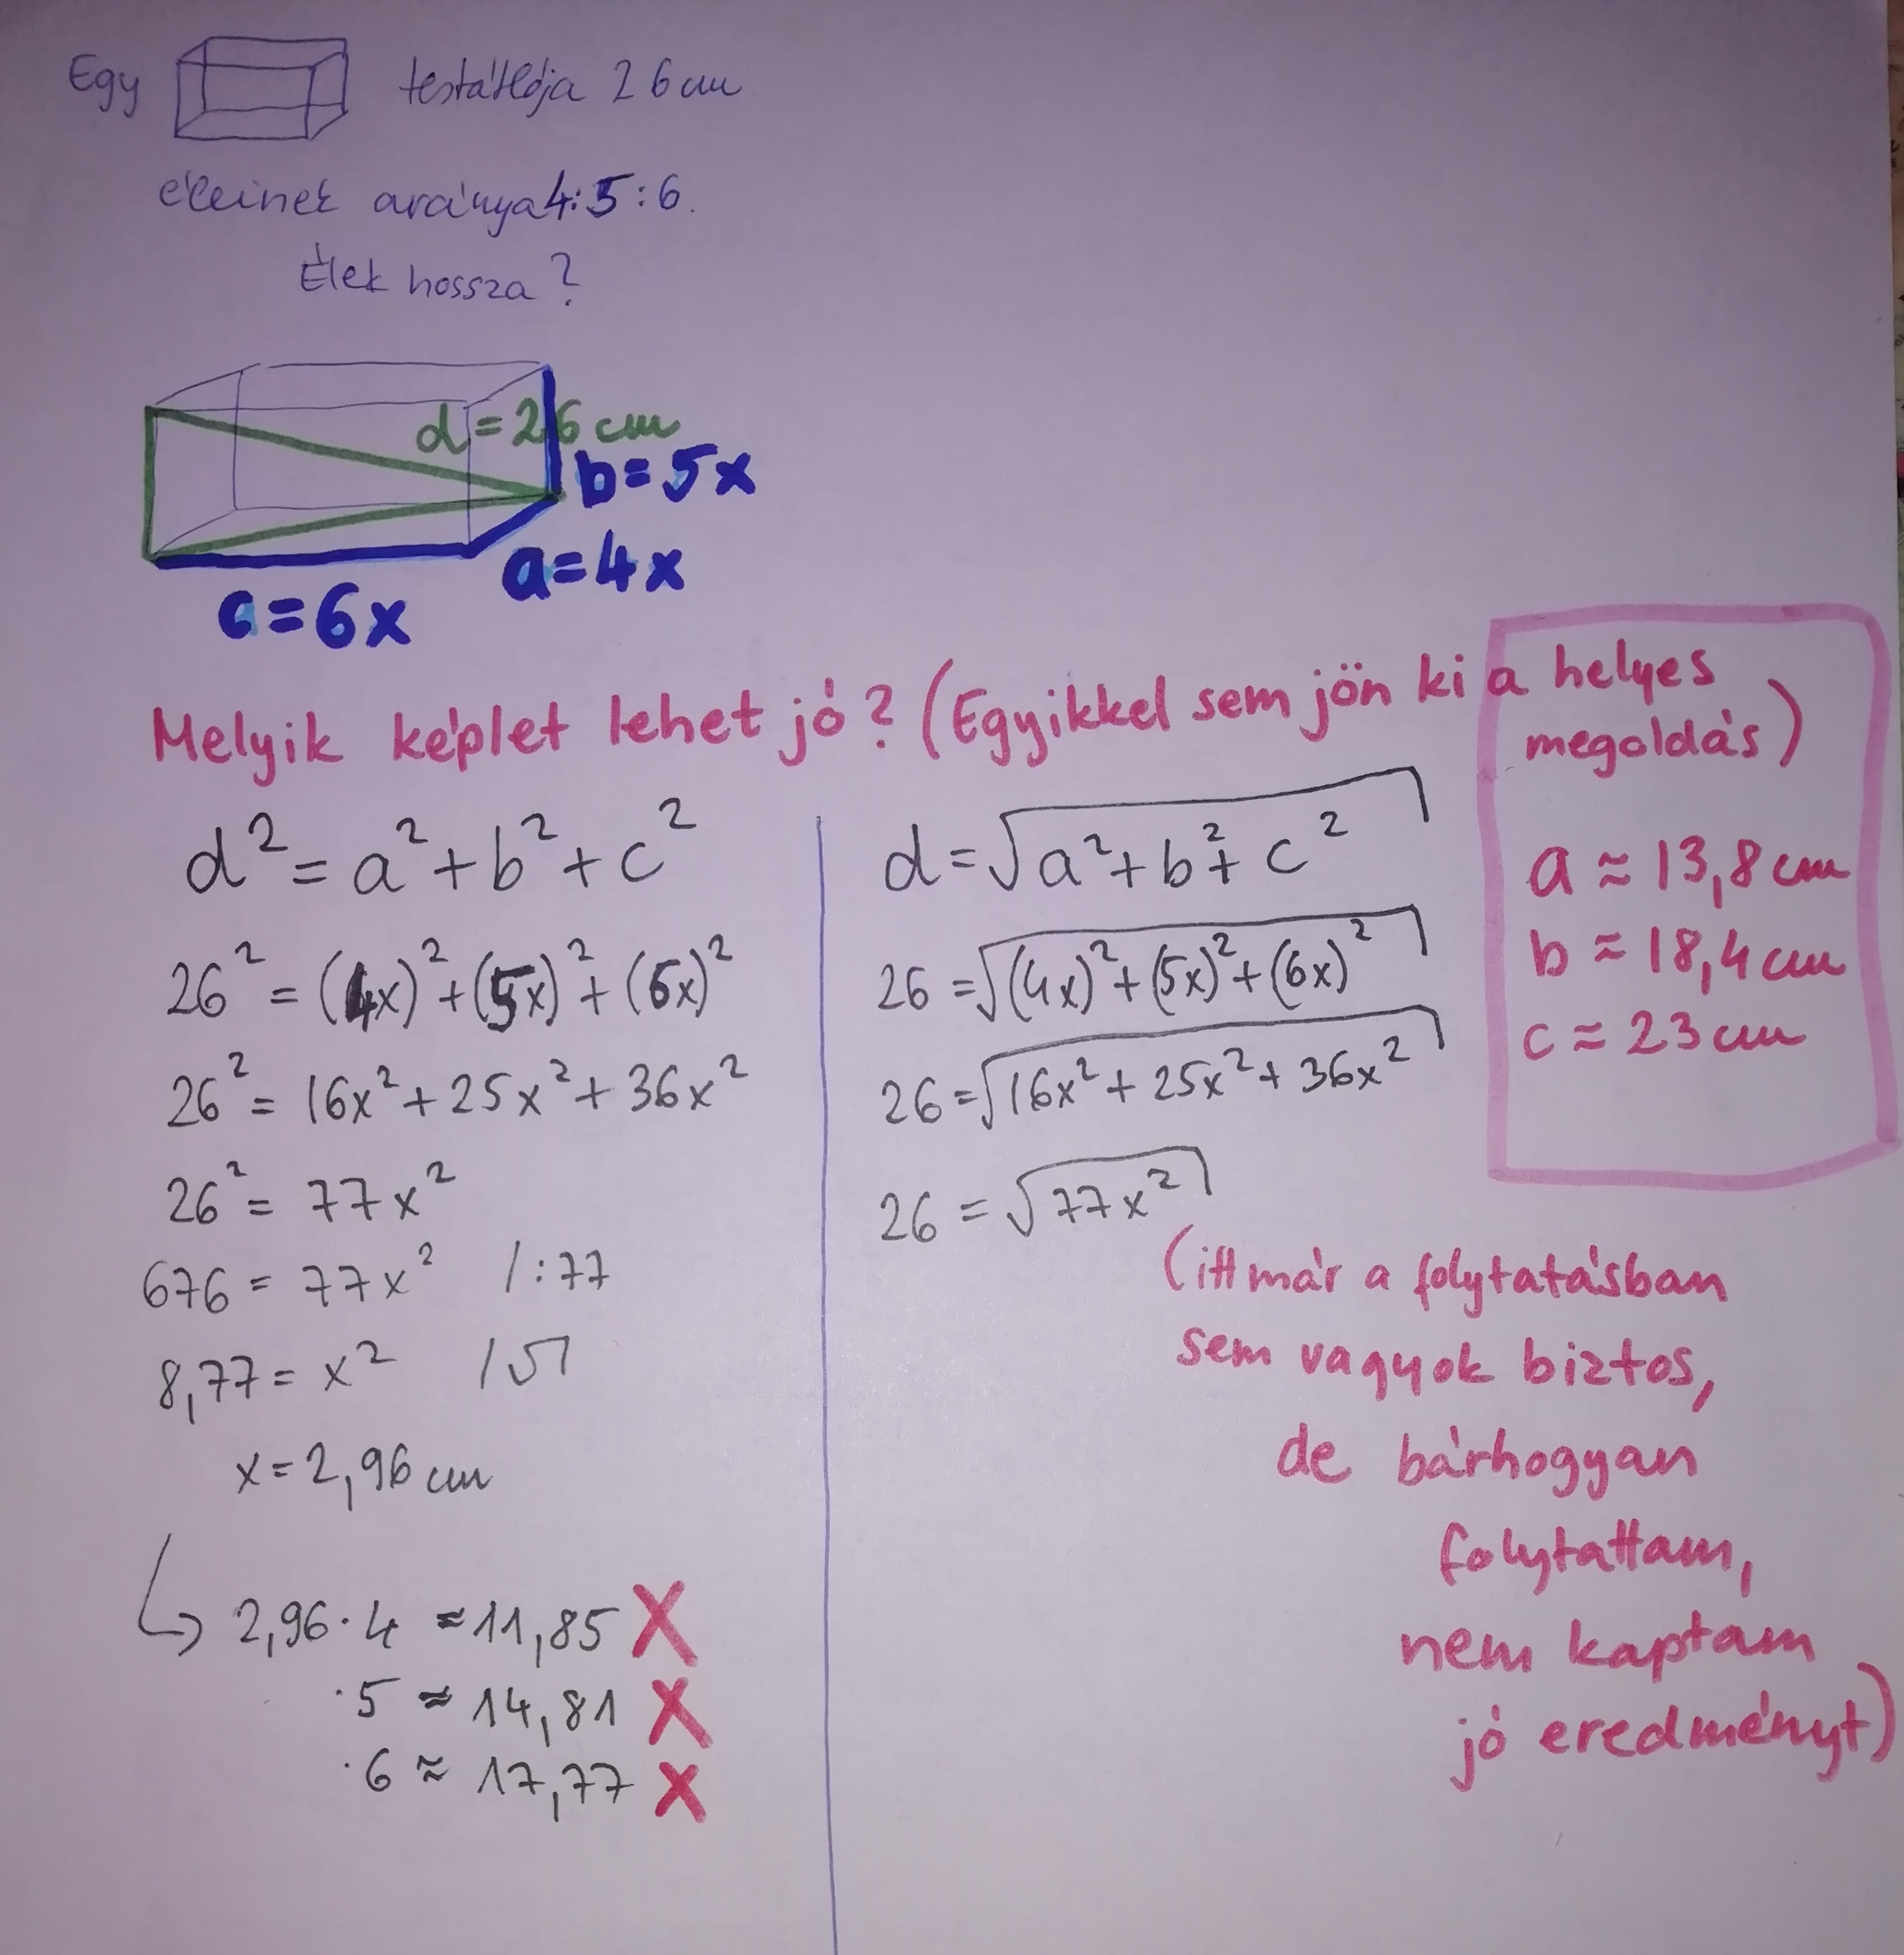 Egy testátlója 26 cm
éleinek aránya 4:5:6.
Élek hossza?
d=26 cm
b=5x
a=4x
c=6x
Melyik képlet lehet jó? (Egyikkel sem jön ki a helyes
megoldás)
d² = a² + b² + c²
26² = (4x)² + (5x)² + (6x)²
26² = 16x² + 25x² + 36x²
26² = 77x²
676 = 77x² /:77
8,77 = x² /√
x = 2,96 cm
↳ 2,96·4 ≈ 11,85 X
·5 ≈ 14,81 X
·6 ≈ 17,77 X
d = √a² + b² + c²
26 = √(4x)² + (5x)² + (6x)²
26 = √16x² + 25x² + 36x²
26 = √77x²
(itt már a folytatásban
sem vagyok biztos,
de bárhogyan
folytattam,
nem kaptam
jó eredményt)
a ≈ 13,8 cm
b ≈ 18,4 cm
c ≈ 23 cm